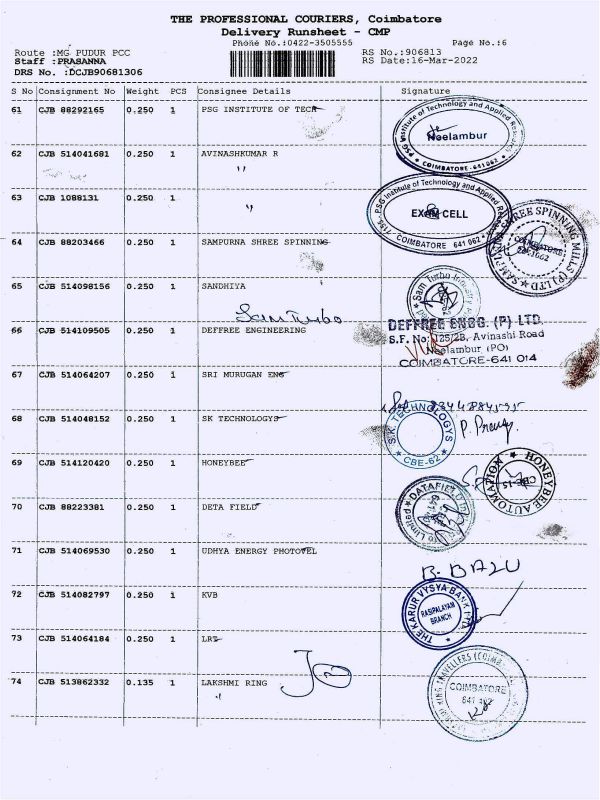 THE PROFESSIONAL COURIERS, Coimbatore
Delivery Runsheet - CMP
Phone No.:0422-3505555 Page No.:6
Route :MG PUDUR PCC RS No.:906813
Staff :PRASANNA RS Date:16-Mar-2022
DRS No. :DCJB90681306
S No Consignment No Weight PCS Consignee Details Signature
61 CJB 88292165 0.250 1 PSG INSTITUTE OF TECH
PSG Institute of Technology and Applied Research
Neelambur
COIMBATORE - 641 062
62 CJB 514041681 0.250 1 AVINASHKUMAR R
"
63 CJB 1088131 0.250 1 "
PSG Institute of Technology and Applied
EXAM CELL
COIMBATORE 641 062
64 CJB 88203466 0.250 1 SAMPURNA SHREE SPINNING
SHREE SPINNING MILLS (P) LTD
COIMBATORE
65 CJB 514098156 0.250 1 SANDHIYA
Sam Turbo
Sam Turbo Industry
66 CJB 514109505 0.250 1 DEFFREE ENGINEERING
DEFFREE ENGG. (P) LTD.
S.F. No: 125/2B, Avinashi Road
Neelambur (PO)
COIMBATORE-641 014
67 CJB 514064207 0.250 1 SRI MURUGAN ENG
68 CJB 514048152 0.250 1 SK TECHNOLOGYS
S.K. TECHNOLOGYS
CBE-62
69 CJB 514120420 0.250 1 HONEYBEE
HONEYBEE AUTOMATION
CBE-15
70 CJB 88223381 0.250 1 DETA FIELD
DATAFIELD
Limited
71 CJB 514069530 0.250 1 UDHYA ENERGY PHOTOVEL
B. BALU
72 CJB 514082797 0.250 1 KVB
THE KARUR VYSYA BANK LTD
RASIPALAYAM
BRANCH
73 CJB 514064184 0.250 1 LRT
74 CJB 513862332 0.135 1 LAKSHMI RING
"
RING TRAVELLERS
COIMBATORE